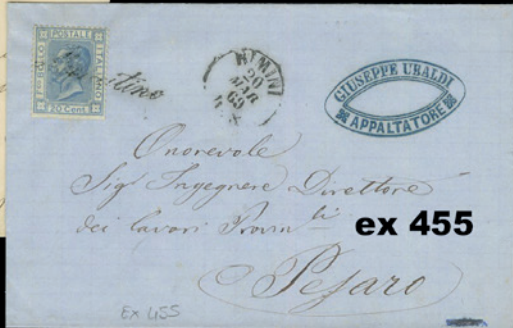 FRANCO BOLLO
POSTALE
ITALIANO
20 Cent.
RIMINI
20
MAR
69
GIUSEPPE UBALDI
APPALTATORE
Onorevole
Sigr Ingegnere Direttore
dei lavori Provinli
ex 455
Pesaro
EX 455